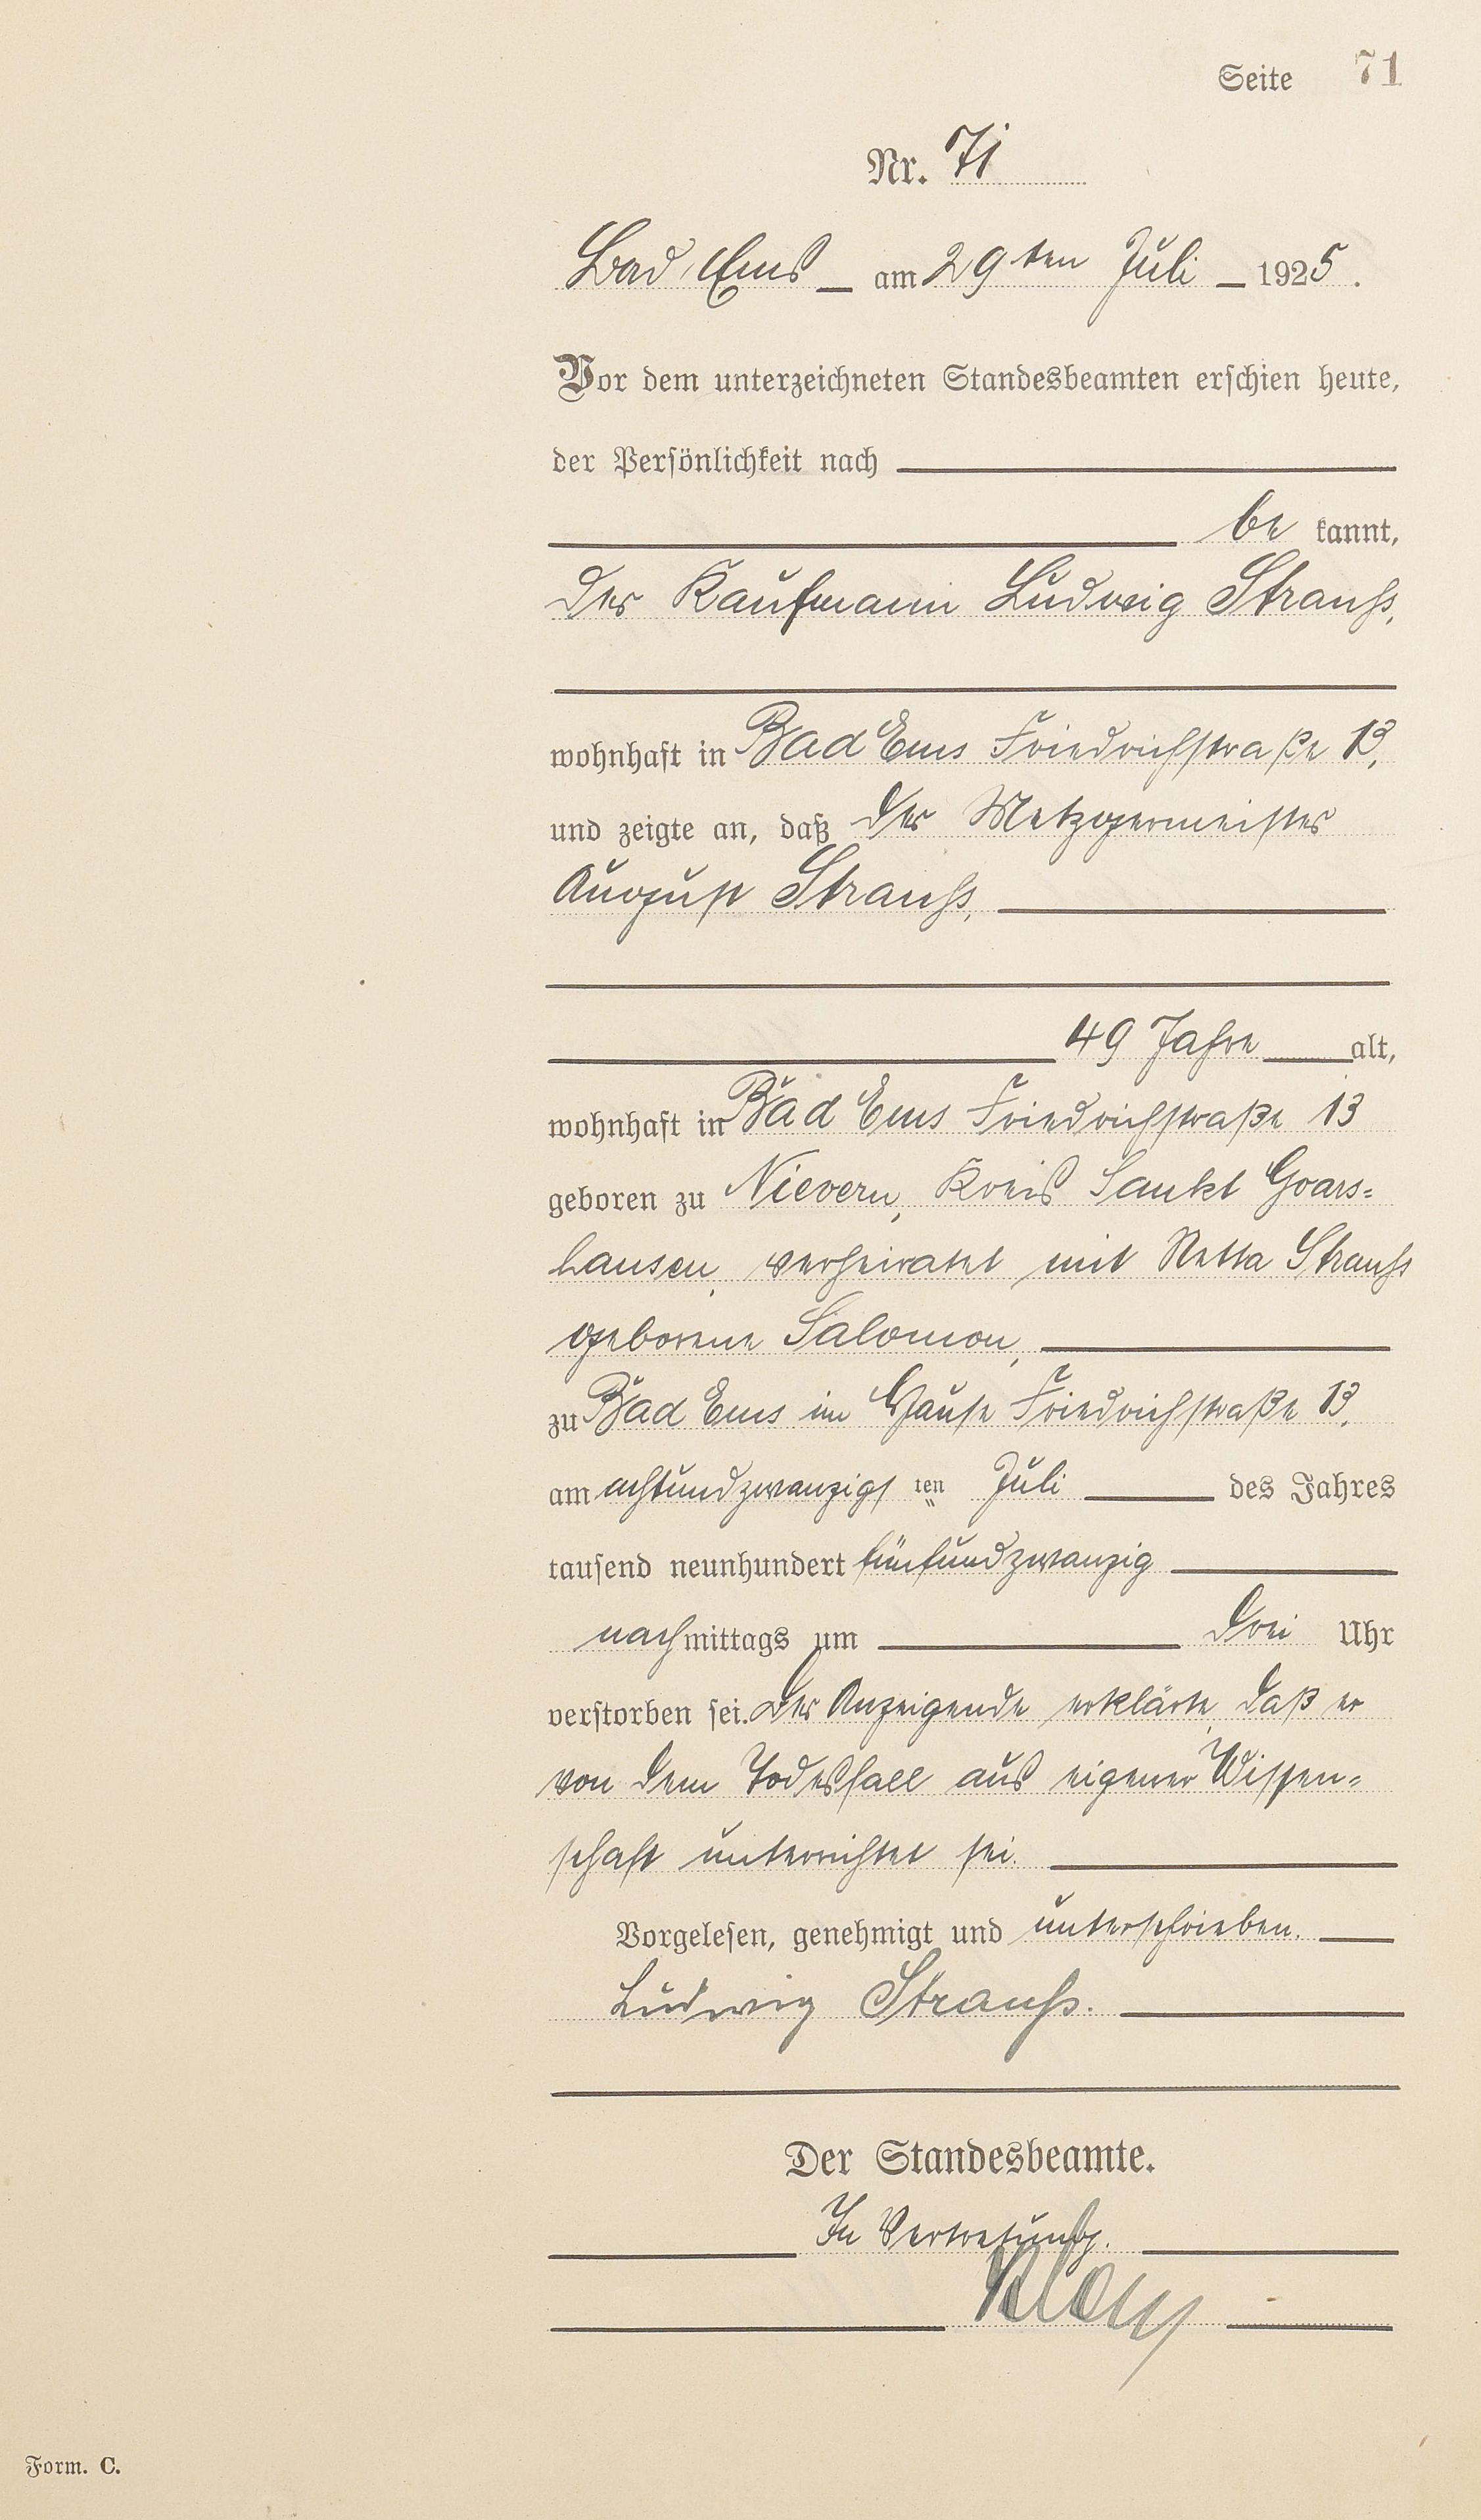 Seite 71
Nr. 71
Bad Ems am 29ten Juli 1925.
Vor dem unterzeichneten Standesbeamten erschien heute,
der Persönlichkeit nach
be kannt,
der Kaufmann Ludwig Strauß,
wohnhaft in Bad Ems Friedrichstraße 13,
und zeigte an, daß der Metzgermeister
August Strauß,
49 Jahre alt,
wohnhaft in Bad Ems Friedrichstraße 13
geboren zu Nievern, Kreis Sankt Goars=
hausen, verheiratet mit Netta Strauß
geborene Salomon,
zu Bad Ems im Hause Friedrichstraße 13,
am achtundzwanzigsten Juli des Jahres
tausend neunhundert fünfundzwanzig
nachmittags um drei Uhr
verstorben sei. Der Anzeigende erklärte, daß er
von dem Todesfall aus eigener Wissen=
schaft unterrichtet sei.
Vorgelesen, genehmigt und unterschrieben.
Ludwig Strauß.
Der Standesbeamte.
In Vertretung.
Form. C.